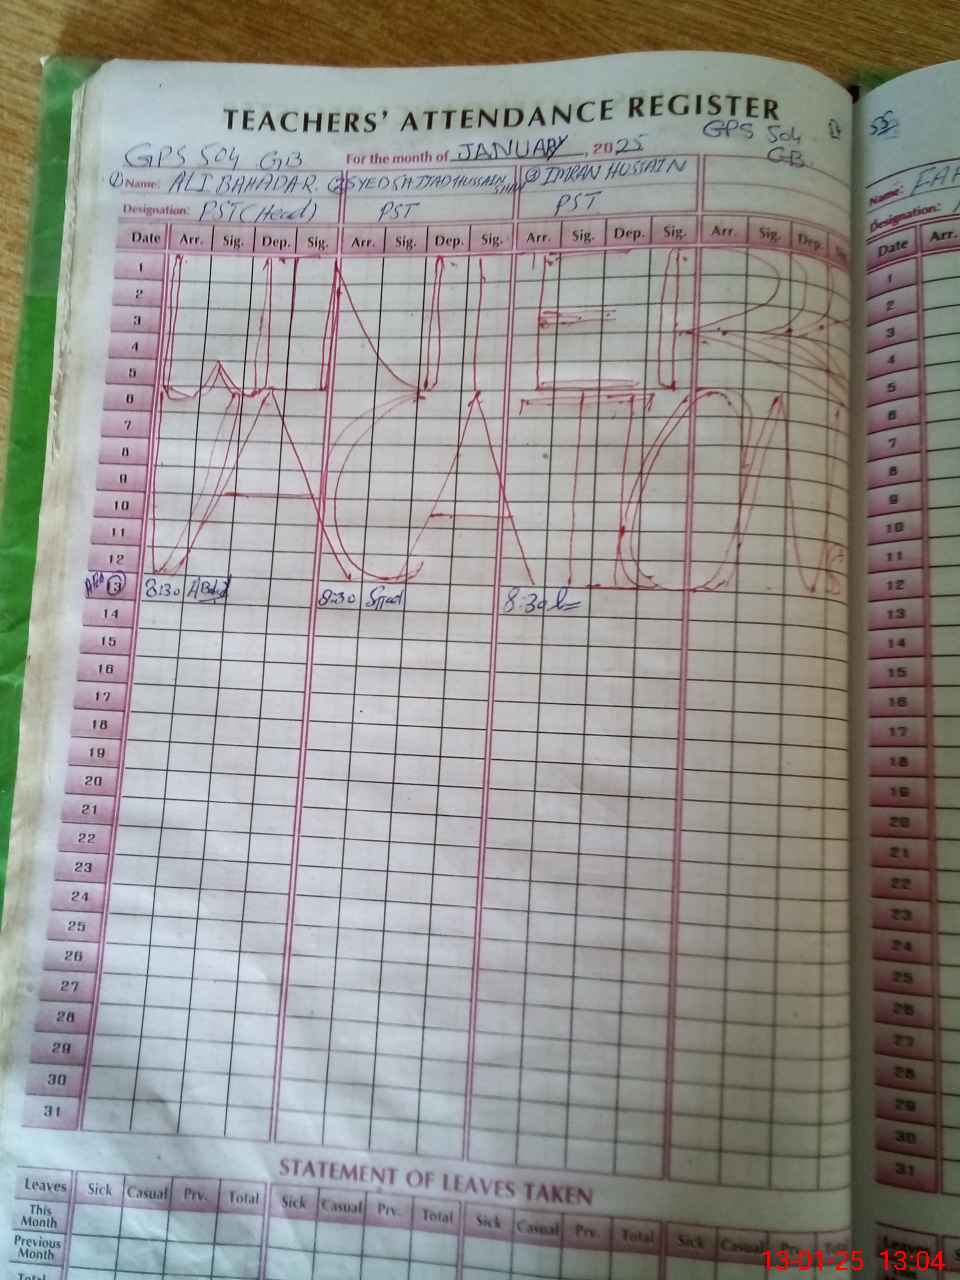 TEACHERS' ATTENDANCE REGISTER
GPS 504 GB For the month of JANUARY, 2025 GPS 504 GB.
① Name: ALI BAHADAR. ② SYED SAJJAD HUSSAIN SHAH ③ IMRAN HUSSAIN
Designation: PST (Head) PST PST
Date Arr. Sig. Dep. Sig. Arr. Sig. Dep. Sig. Arr. Sig. Dep. Sig. Arr. Sig. Dep.
WINTER
VACATION
1
2
3
4
5
6
7
8
9
10
11
12
13 8:30 8:30 8:30
14
15
16
17
18
19
20
21
22
23
24
25
26
27
28
29
30
31
STATEMENT OF LEAVES TAKEN
Leaves Sick Casual Prv. Total Sick Casual Prv. Total Sick Casual Prv. Total Sick Casual Prv.
This Month
Previous Month
Total
Name:
Designation:
Date Arr.
1
2
3
4
5
6
7
8
9
10
11
12
13
14
15
16
17
18
19
20
21
22
23
24
25
26
27
28
29
30
31
Leaves
13-01-25 13:04